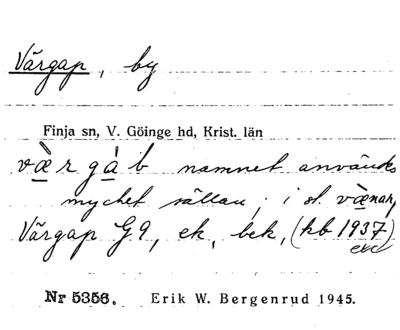 Värgap, by
Finja sn, V. Göinge hd, Krist. län
væ̀r gá b namnet används
mycket sällan; i st. væ̀nar,
Värgap G9, ek, bek, (kb 1937)
exc
Nr 5356. Erik W. Bergenrud 1945.